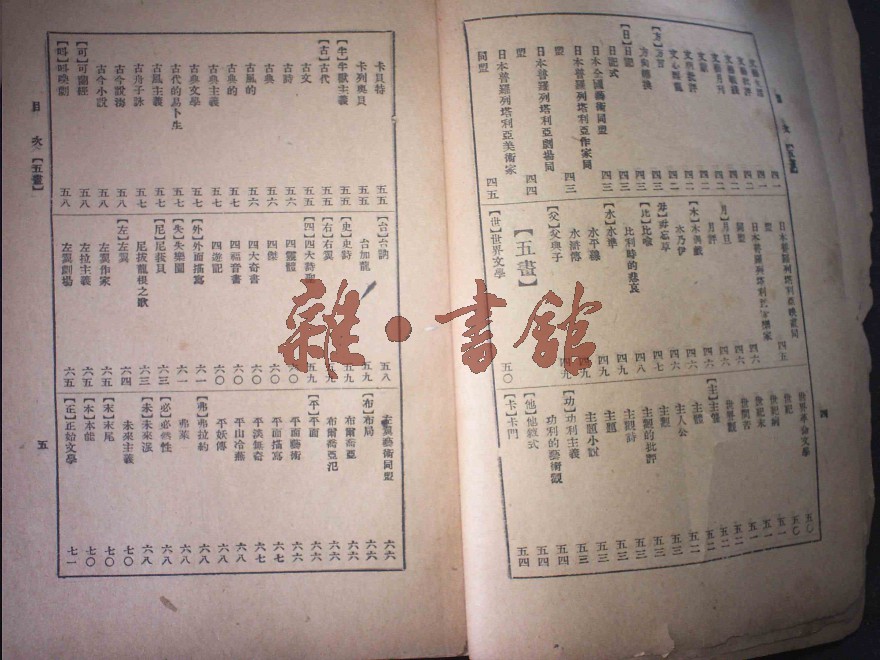 文藝月刊 四二
文學批評 四二
文心雕龍 四二
【方】方言 四二
方向轉換
【日】日記
日記式 四三
日本全國藝術同盟 四三
日本普羅列塔利亞作家同
盟 四三
日本普羅列塔利亞劇場同
盟 四四
日本普羅列塔利亞美術家
同盟 四五
日本普羅列塔利亞映畫同
盟 四五
日本普羅列塔利亞音樂家
同盟 四六
【月】月旦 四六
月評 四六
木乃伊 四六
【毋】毋忘草 四七
【比】比喻 四八
比利時的悲哀 四九
【水】水準 四九
水平線 四九
水滸傳 四九
【父】父與子 四九
【五畫】
【世】世界文學 五〇
世界革命文學 五〇
世紀 五〇
世紀病 五一
世紀末 五一
世間苦 五一
主人公 五三
主觀的批評 五三
主觀詩 五三
主題 五三
主題小說 五三
【功】功利主義 五四
功利的藝術觀 五四
【他】他敘式 五四
【卡】卡門 五四
四
卡貝特 五五
卡列奧貝 五五
【牛】牛獸主義 五五
【古】古代 五五
古文 五五
古詩 五六
古典 五六
古風的 五六
古典的 五七
古典主義 五七
古典文學 五七
古代的易卜生 五七
古風主義 五七
古舟子詠 五七
古今說海 五八
古今小說 五八
【可】可蘭經 五八
【叫】叫喚劇 五八
【台】台詞 五八
台加龍 五九
【史】史詩 五九
【右】右翼 五九
【四】四大詩聖 五九
四靈體 六〇
四傑 六〇
四大奇書 六〇
四福音書 六〇
四遊記 六〇
【外】外面描寫 六一
【失】失樂園 六一
【尼】尼萩貝 六三
尼拔龍根之歌 六三
【左】左翼 六四
左翼作家 六五
左拉主義 六五
左翼劇場 六五
左翼藝術同盟 六六
【布】布局 六六
布爾喬亞 六六
布爾喬亞氾 六六
【平】平面 六六
平面藝術 六六
平面描寫 六七
平淡無奇 六七
平山冷燕 六八
平妖傳 六八
【弗】弗拉約 六八
弗萊 六八
【必】必然性 六八
【未】未來派 六八
未來主義 七〇
【末】末尾 七〇
【本】本能 七〇
【正】正始文學 七一
目次【五畫】
五
雜·書館